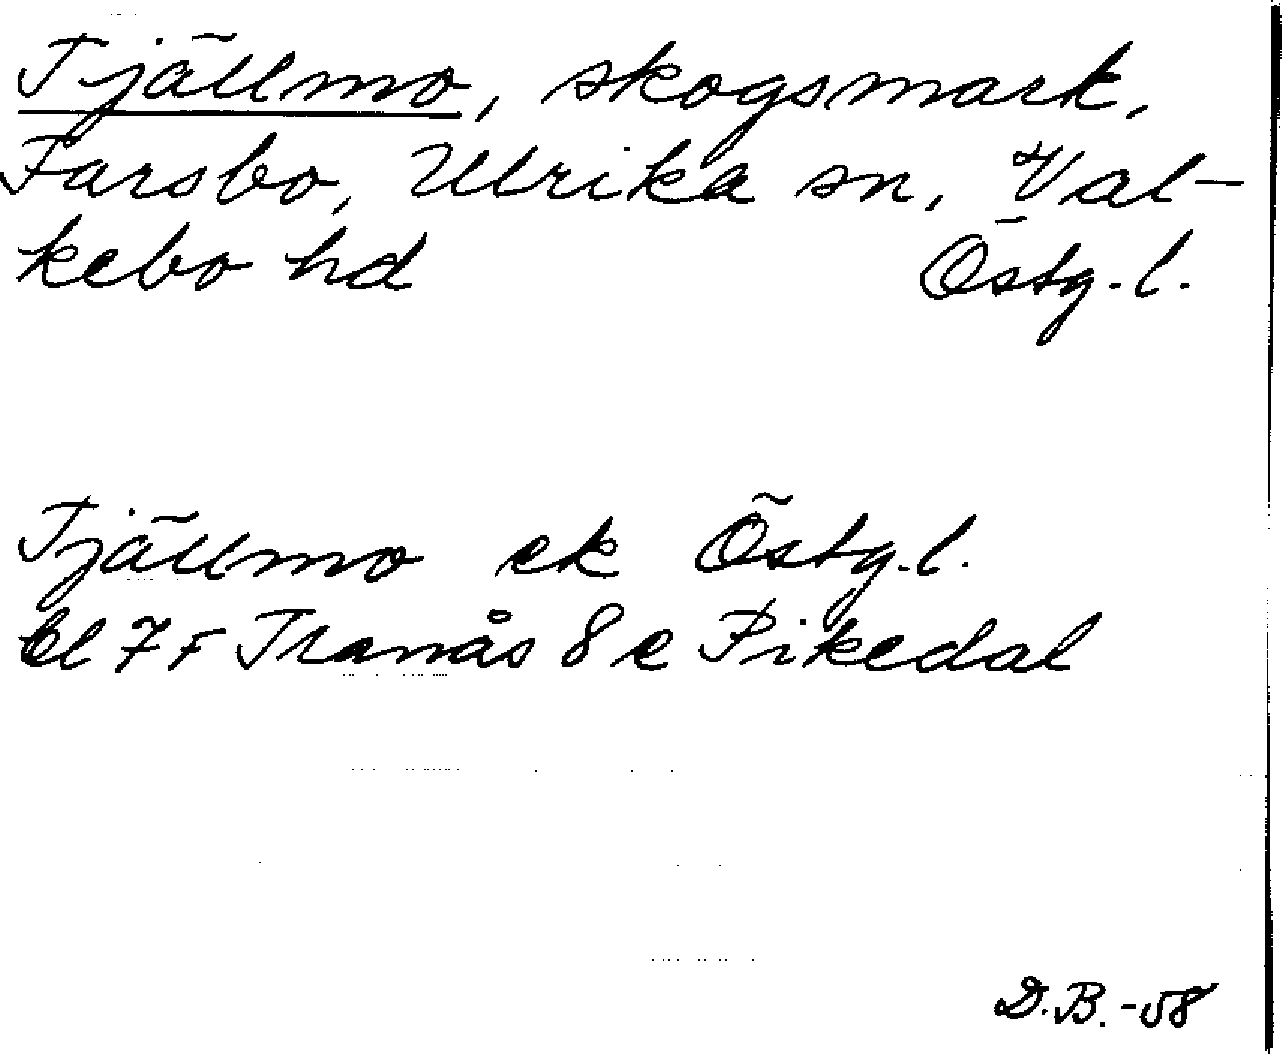 Tjällmo, skogsmark,
Farsbo, Ulrika sn, Val-
kebo hd Östg. l.
Tjällmo ek Östg. l.
bl 7 F Tranås 8 e Pikedal
D.B. -58